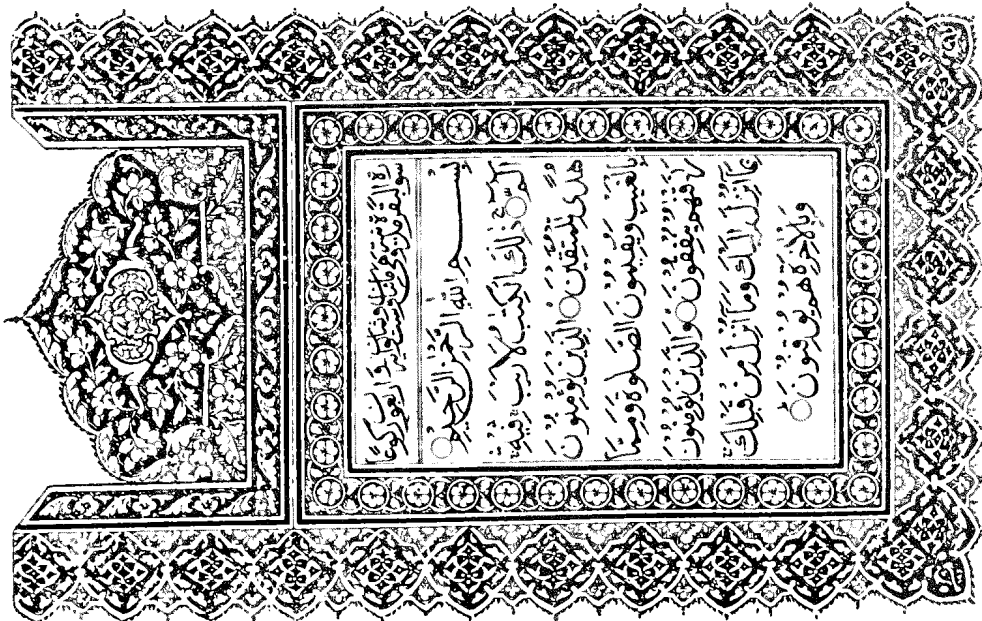 سورة البقرة
بِسْمِ اللهِ الرَّحْمٰنِ الرَّحِيْمِ
الٓمّٓ ۚ ذٰلِكَ الْكِتٰبُ لَا رَيْبَ ۛ فِيْهِ ۛ
هُدًى لِّلْمُتَّقِيْنَ الَّذِيْنَ يُؤْمِنُوْنَ
بِالْغَيْبِ وَيُقِيْمُوْنَ الصَّلٰوةَ وَمِمَّا
رَزَقْنٰهُمْ يُنْفِقُوْنَ وَالَّذِيْنَ يُؤْمِنُوْنَ
بِمَآ اُنْزِلَ اِلَيْكَ وَمَآ اُنْزِلَ مِنْ قَبْلِكَ ۚ
وَبِالْاٰخِرَةِ هُمْ يُوْقِنُوْنَ